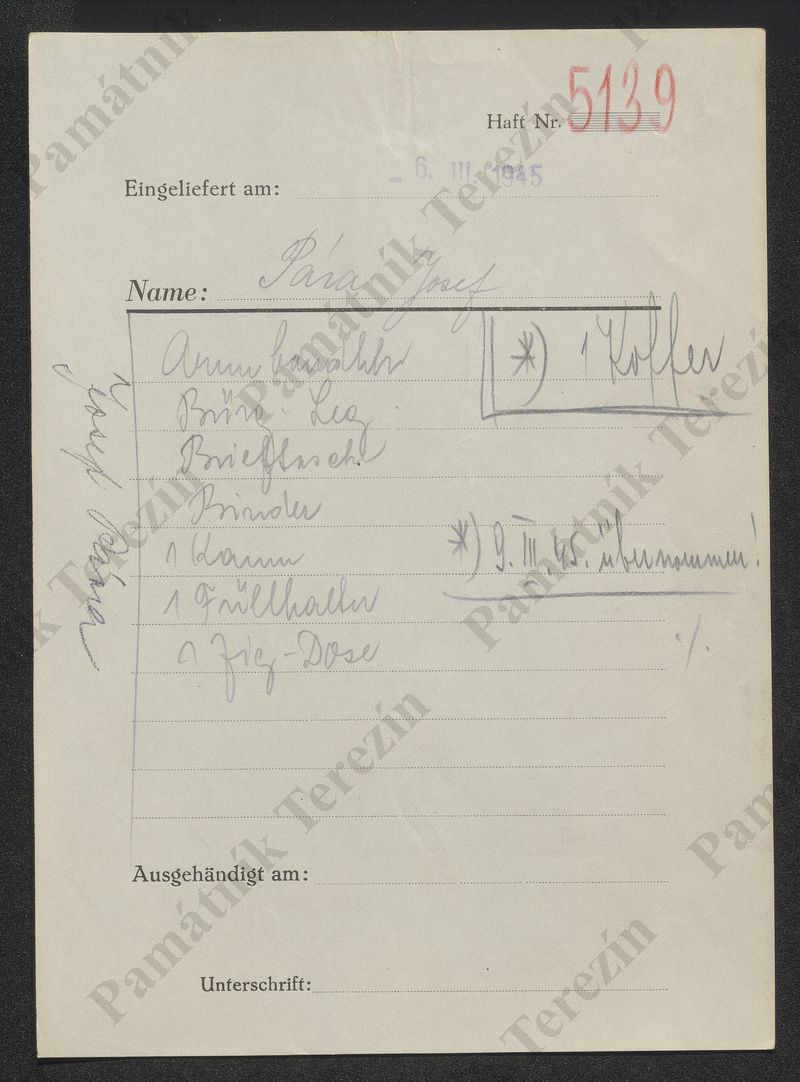 Haft Nr. 5139
Eingeliefert am: - 6. III. 1945
Name: Pára Josef
Armbanduhr
*) 1 Koffer
Bürg. Leg.
Brieftasche
Binder
1 Kamm
*) 9. III. 45. übernommen!
1 Füllhalter
1 Zig-Dose
·/·
Josef Pára
Ausgehändigt am:
Unterschrift:
Památník Terezín
Památník Terezín
Památník Terezín
Památník Terezín